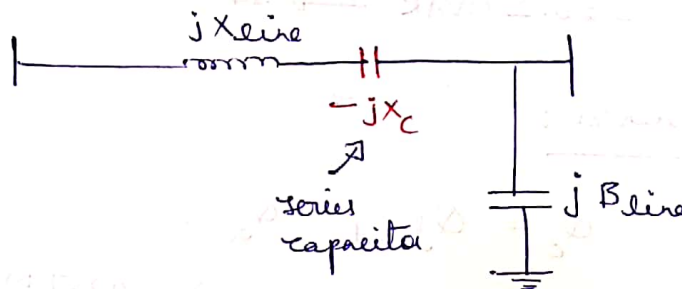 jXline
-jXC
series
capacitor
jBline